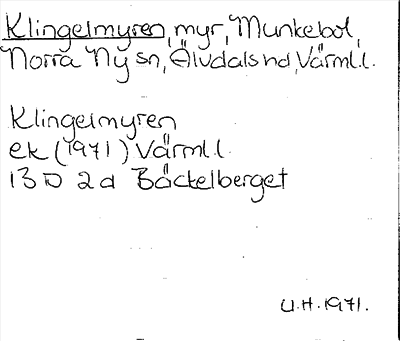 Klingelmyren, myr, Munkebol,
Norra Ny sn, Älvdals hd, Värml.l.
Klingelmyren
ek (1971) Värml.l.
13D 2d Bäckelberget
U.H. 1971.